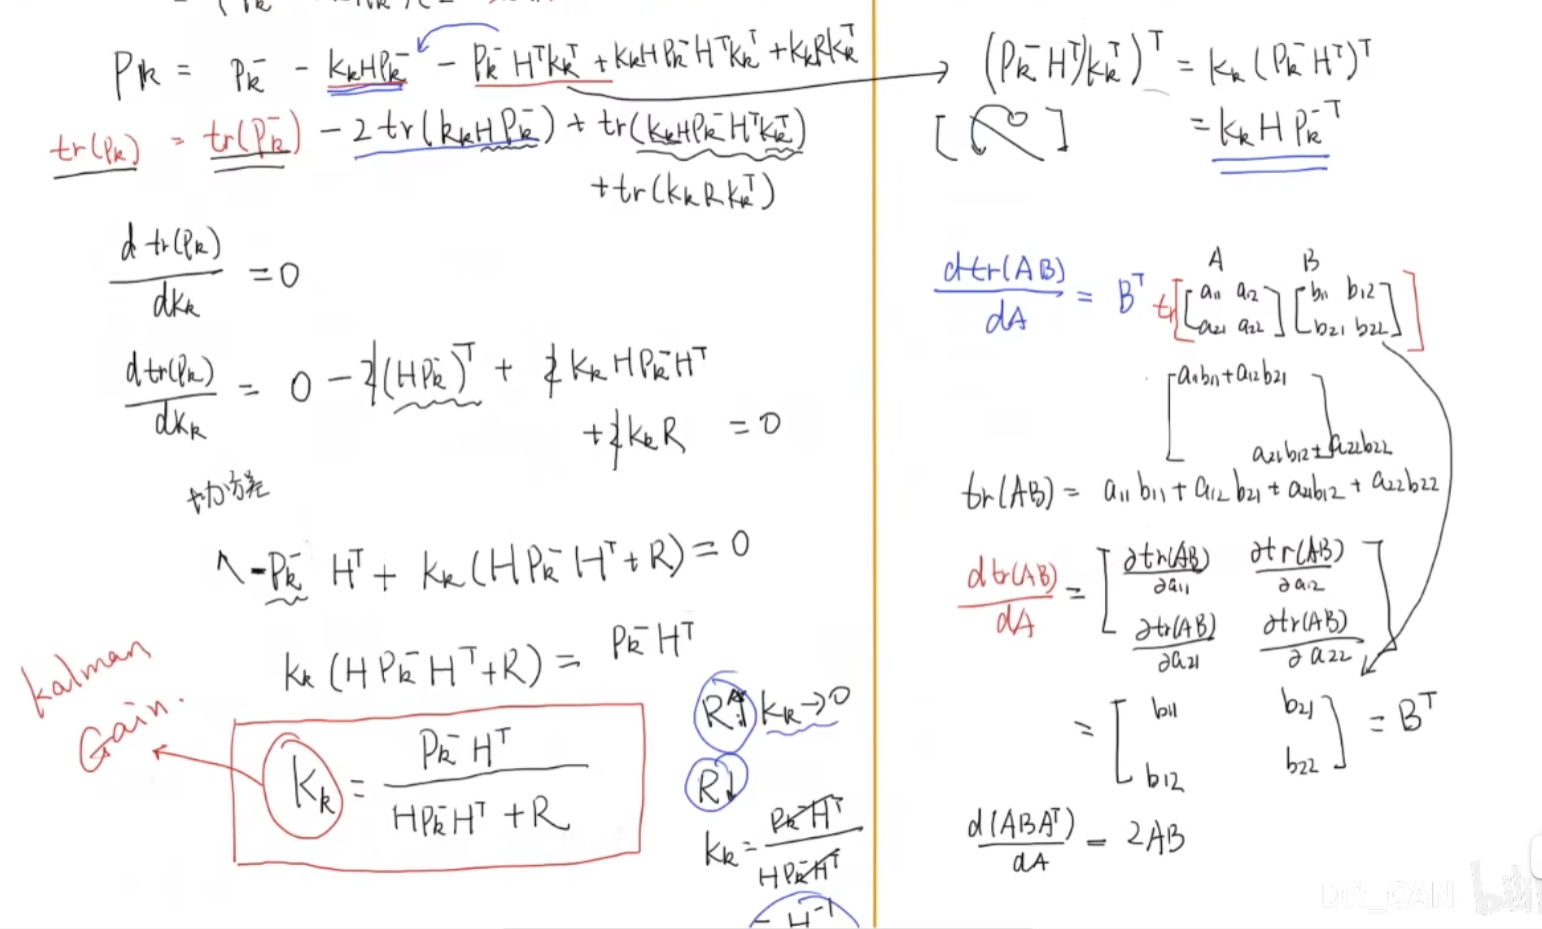 Pk = Pk⁻ - KkHPk⁻ - Pk⁻HᵀKkᵀ + KkHPk⁻HᵀKkᵀ + KkRKkᵀ
tr(Pk) = tr(Pk⁻) - 2tr(KkHPk⁻) + tr(KkHPk⁻HᵀKkᵀ)
+tr(KkRKkᵀ)
d tr(Pk)/dKk = 0
dtr(Pk)/dKk = 0 - 2(HPk⁻)ᵀ + 2KkHPk⁻Hᵀ
+2KkR = 0
协方差
-Pk⁻Hᵀ + Kk(HPk⁻Hᵀ+R) = 0
Kk(HPk⁻Hᵀ+R) = Pk⁻Hᵀ
Kalman
Gain.
Kk = Pk⁻Hᵀ/HPk⁻Hᵀ+R
R↑ Kk→0
R↓
Kk = Pk⁻Hᵀ/HPk⁻Hᵀ
= H⁻¹
(Pk⁻HᵀKkᵀ)ᵀ = Kk(Pk⁻Hᵀ)ᵀ
[ ] = KkHPk⁻ᵀ
A B
dtr(AB)/dA = Bᵀ tr[[a11 a12 a21 a22][b11 b12 b21 b22]]
[a11b11+a12b21
a21b12+a22b22]
tr(AB) = a11b11 + a12b21 + a21b12 + a22b22
dtr(AB)/dA = [∂tr(AB)/∂a11 ∂tr(AB)/∂a12
∂tr(AB)/∂a21 ∂tr(AB)/∂a22]
= [b11 b21
b12 b22] = Bᵀ
d(ABAᵀ)/dA = 2AB
DR_CAN